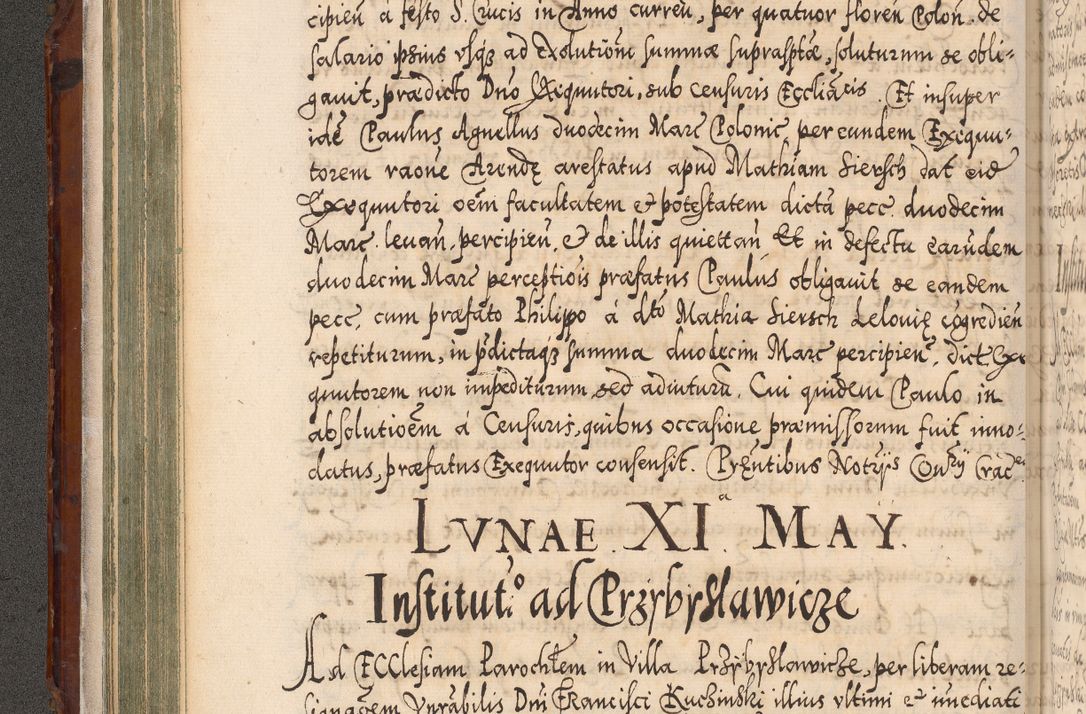 cipien à festo S. Crucis in Anno curren, per quatuor floren Polon. de
salario ipsius usq3 ad exolutiom summæ suprasptæ, soluturum se obli-
gavit, prædicto Dno Exequutori, sub censuris Eccliacis. Et insuper
idē Paulus Agnellus duodecim Marc Polonic, per eundem Exequu-
torem raone Arendę arestatus apud Mathiam Siersch dat eid
Exequutori oēm facultatem et potestatem dictā pecc. duodecim
Marc. levan, percipien, et de illis quiettan Et in defectu earūdem
duodecim Marc perceptiois præfatus Paulus obligavit se eandem
pecc, cum præfato Philippo à dto Mathia Siersch Lelovię cōgredien
repetiturum, in pdictaq3 summa duodecim Marc percipien, dict Exe
quutorem non impediturum, sed adiuturū. Cui quidem Paulo in
absolutioēm à Censuris, quibus occasione præmissorum fuit inno-
datus, præfatus Exequutor consensit. Prƶntibus Notrijs Conƶij Crac
LVNAE XI.a MAY.
Institut.o ad Przÿbÿsławicze
Ad ECClesiam Parochłem in Villa Przÿbÿsławicze, per liberam re-
signaoēm Vnrabilis Dni Francisci Kuchinski illius ultimi et imediati